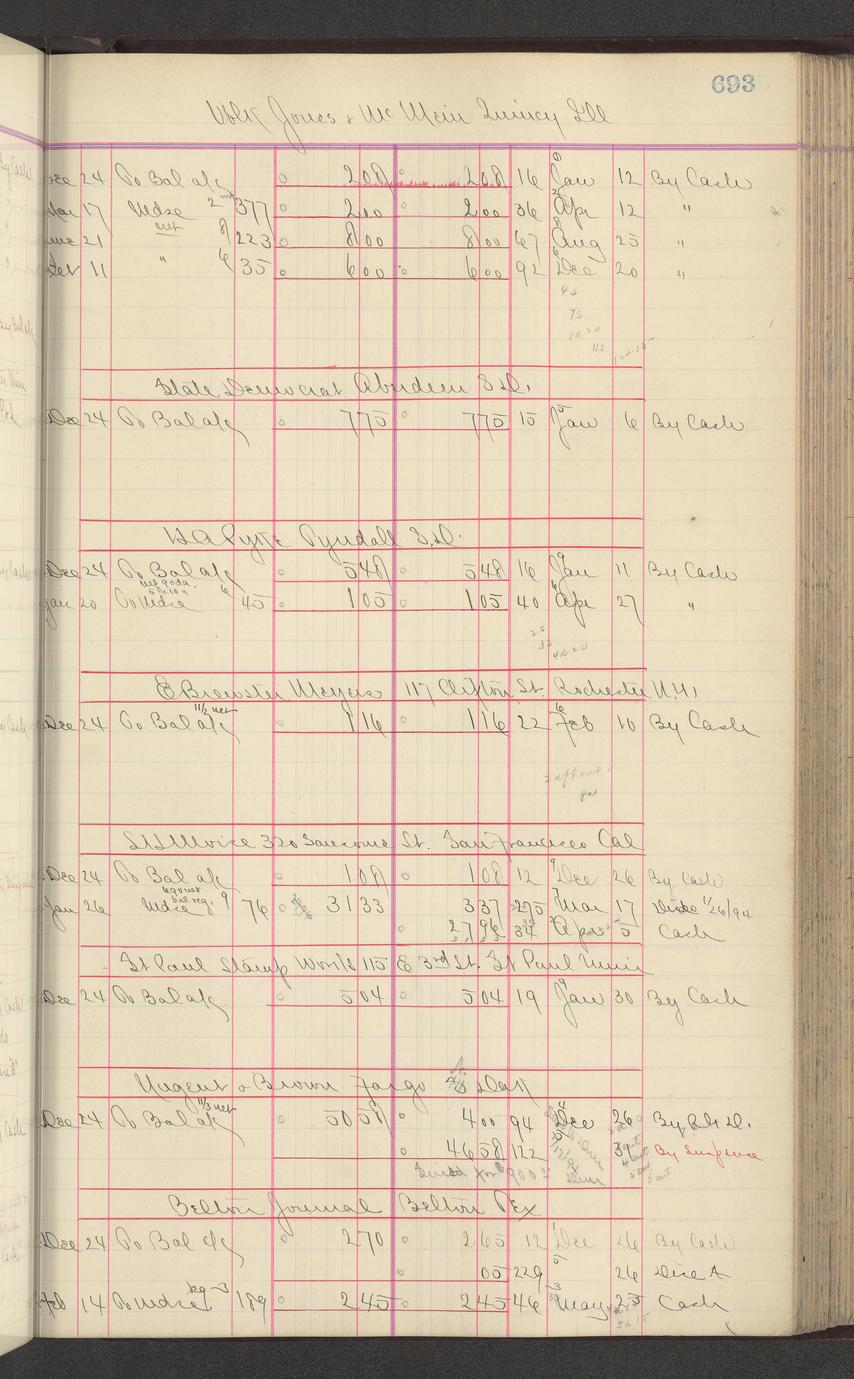 693
Volk Jones & McMein Quincy Ill
Dec 24 To Bal a/c 208 208 16 Jan 12 By Cash
Mar 17 Mdse 377 200 200 36 Apr 12 "
June 21 net 8 223 800 800 67 Aug 25 "
Oct 11 " 6 35 600 600 92 Dec 20 "
State Democrat Aberdeen S.D.
Dec 24 To Bal a/c 775 775 15 Jan 6 By Cash
Tyndall S.D.
Dec 24 To Bal a/c 548 548 16 Jan 11 By Cash
Jan 20 To Mdse 6 45 105 105 40 Apr 27 "
E Brewster Meyers 117 Clifton St. Rochester N.Y.
11/2 net
Dec 24 To Bal a/c 116 116 22 Feb 10 By Cash
320 Sansome St. San Francisco Cal
Dec 24 To Bal a/c 108 108 12 Dec 26 By Cash
Jan 26 Mdse 9 76 3133 337 275 Mar 17 1/26/94
2796 34 Apr 5 Cash
St Paul Stamp Works 115 E 3rd St. St Paul Minn
Dec 24 To Bal a/c 504 504 19 Jan 30 By Cash
Nugent & Brown Fargo Dak
11/3 net
Dec 24 To Bal a/c 5058 400 94 Dec 26
4658 122 31 By Suspense
Belton Journal Belton Tex
Dec 24 To Bal a/c 270 265 12 Dec 26 By Cash
05 229 26
Feb 14 To Mdse 189 245 245 46 May 25 Cash